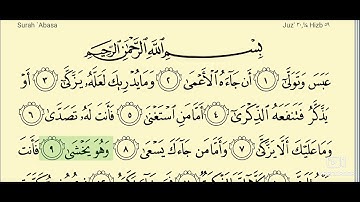 Surah `Abasa
Juz' ٣٠,¼ Hizb ٥٩
بِسْمِ ٱللَّهِ ٱلرَّحْمَٰنِ ٱلرَّحِيمِ
عَبَسَ وَتَوَلَّىٰٓ ١ أَن جَآءَهُ ٱلْأَعْمَىٰ ٢ وَمَا يُدْرِيكَ لَعَلَّهُۥ يَزَّكَّىٰٓ ٣ أَوْ
يَذَّكَّرُ فَتَنفَعَهُ ٱلذِّكْرَىٰٓ ٤ أَمَّا مَنِ ٱسْتَغْنَىٰ ٥ فَأَنتَ لَهُۥ تَصَدَّىٰ ٦
وَمَا عَلَيْكَ أَلَّا يَزَّكَّىٰ ٧ وَأَمَّا مَن جَآءَكَ يَسْعَىٰ ٨ وَهُوَ يَخْشَىٰ ٩ فَأَنتَ